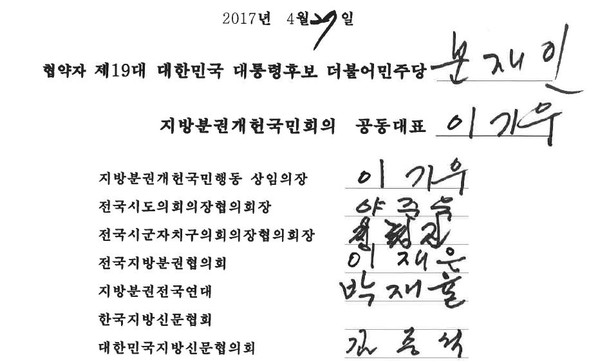 2017년 4월 27일
협약자 제19대 대한민국 대통령후보 더불어민주당 문재인
지방분권개헌국민회의 공동대표 이기우
지방분권개헌국민행동 상임의장 이기우
전국시도의회의장협의회장
전국시군자치구의회의장협의회장
전국지방분권협의회 이재은
지방분권전국연대 박재율
한국지방신문협회
대한민국지방신문협의회 김중석